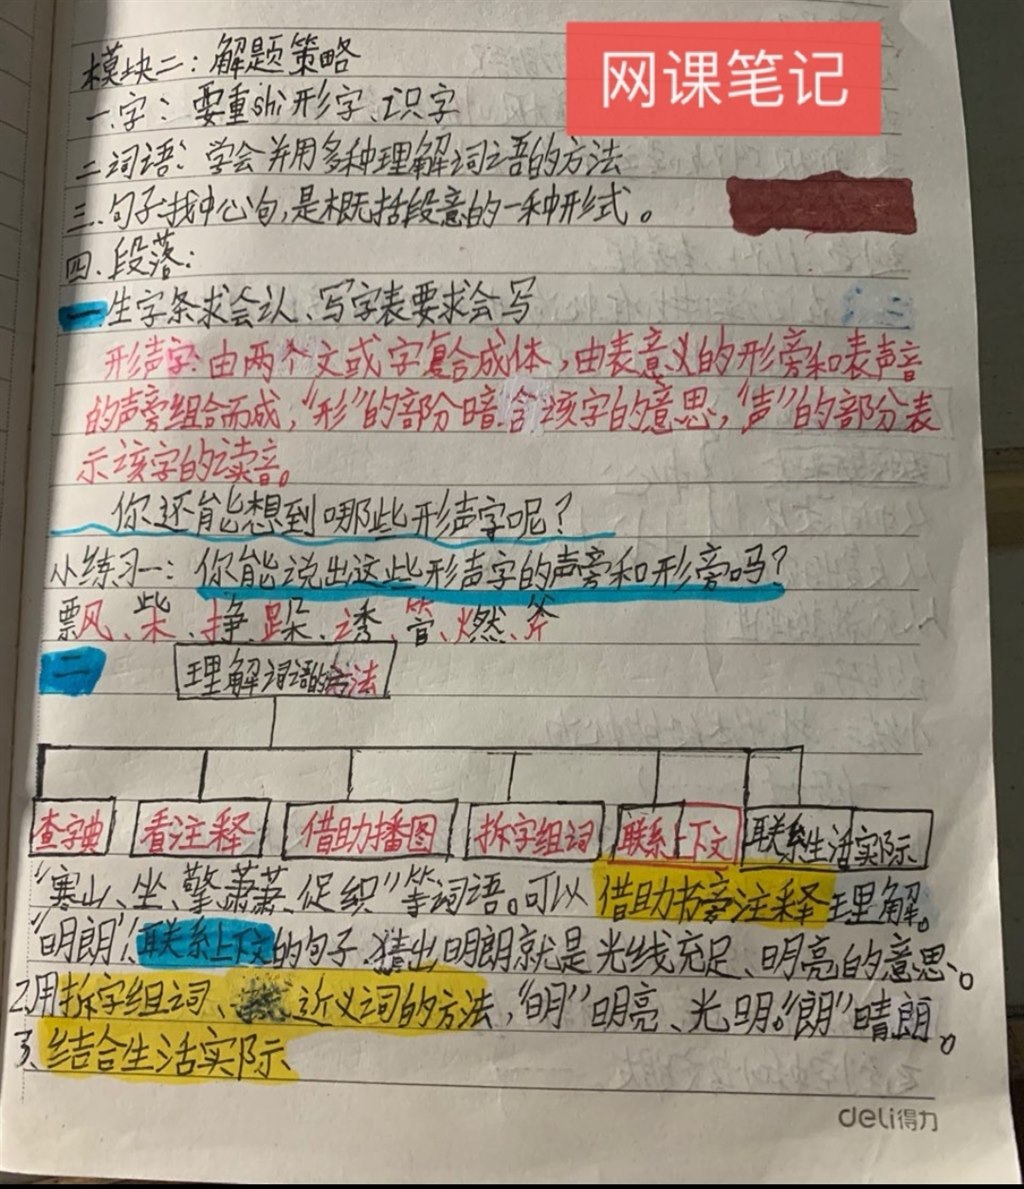 网课笔记
模块二：解题策略
一.字：要重shi形字、识字
二词语：学会并用多种理解词语的方法
三.句子：找中心句，是概括段意的一种形式。
四.段落：
一生字条求会认、写字表要求会写
形声字：由两个文或字复合成体，由表意义的形旁和表声音
的声旁组合而成，“形”的部分暗含该字的意思，“声”的部分表
示该字的读音。
你还能想到哪些形声字呢？
从练习一：你能说出这些形声字的声旁和形旁吗？
飘、柴、挣、跺、诱、管、燃、斧
二 理解词语的方法
查字典 看注释 借助播图 拆字组词 联系上下文 联系生活实际
“寒山、坐、擎、萧萧、促织”等词语。可以借助书旁注释理解。
“明朗”：联系上下文的句子，猜出明朗就是光线充足、明亮的意思。
2.用拆字组词、近义词的方法，“明”明亮、光明。“朗”晴朗。
3、结合生活实际
deli得力